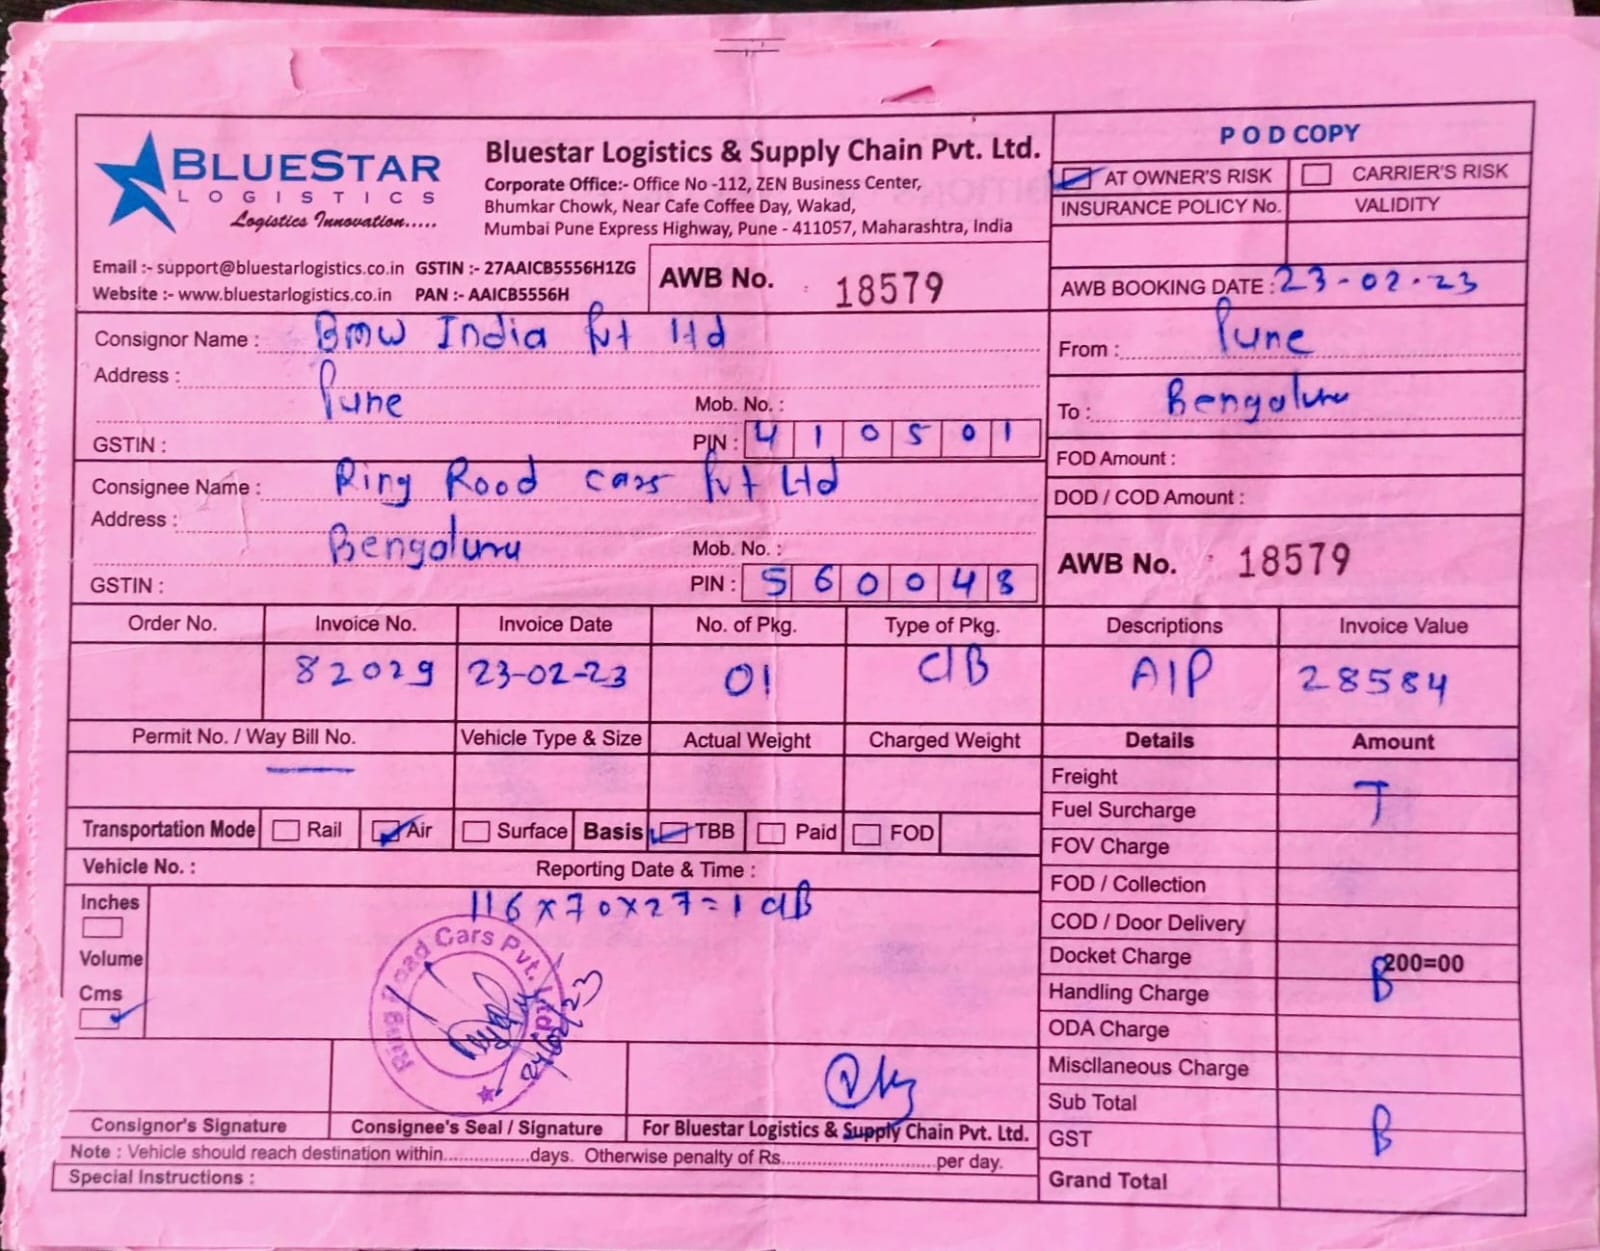 BLUESTAR
LOGISTICS
Logistics Innovation.....
Bluestar Logistics & Supply Chain Pvt. Ltd.
Corporate Office:- Office No -112, ZEN Business Center,
Bhumkar Chowk, Near Cafe Coffee Day, Wakad,
Mumbai Pune Express Highway, Pune - 411057, Maharashtra, India
Email :- support@bluestarlogistics.co.in GSTIN :- 27AAICB5556H1ZG
Website :- www.bluestarlogistics.co.in PAN :- AAICB5556H
AWB No. 18579
POD COPY
AT OWNER'S RISK CARRIER'S RISK
INSURANCE POLICY No. VALIDITY
AWB BOOKING DATE : 23-02-23
Consignor Name : BMW India Pvt Ltd
Address :
Pune Mob. No. :
GSTIN : PIN : 410501
From : Pune
To : Bengaluru
FOD Amount :
DOD / COD Amount :
Consignee Name : Ring Rood cars Pvt Ltd
Address :
Bengaluru Mob. No. :
GSTIN : PIN : 560048
AWB No. 18579
Order No. Invoice No. Invoice Date No. of Pkg. Type of Pkg. Descriptions Invoice Value
82029 23-02-23 01 CIB AIP 28584
Permit No. / Way Bill No. Vehicle Type & Size Actual Weight Charged Weight Details Amount
Transportation Mode Rail Air Surface Basis TBB Paid FOD
Vehicle No. : Reporting Date & Time :
Inches
Volume
Cms
116 x 70 x 27 = 1 CIB
Ring Road Cars Pvt. Ltd.
24/02/23
Freight
T
Fuel Surcharge
FOV Charge
FOD / Collection
COD / Door Delivery
Docket Charge 200=00
B
Handling Charge
ODA Charge
Miscllaneous Charge
Sub Total
GST B
Grand Total
Consignor's Signature Consignee's Seal / Signature For Bluestar Logistics & Supply Chain Pvt. Ltd.
Note : Vehicle should reach destination within................days. Otherwise penalty of Rs..............................per day.
Special Instructions :